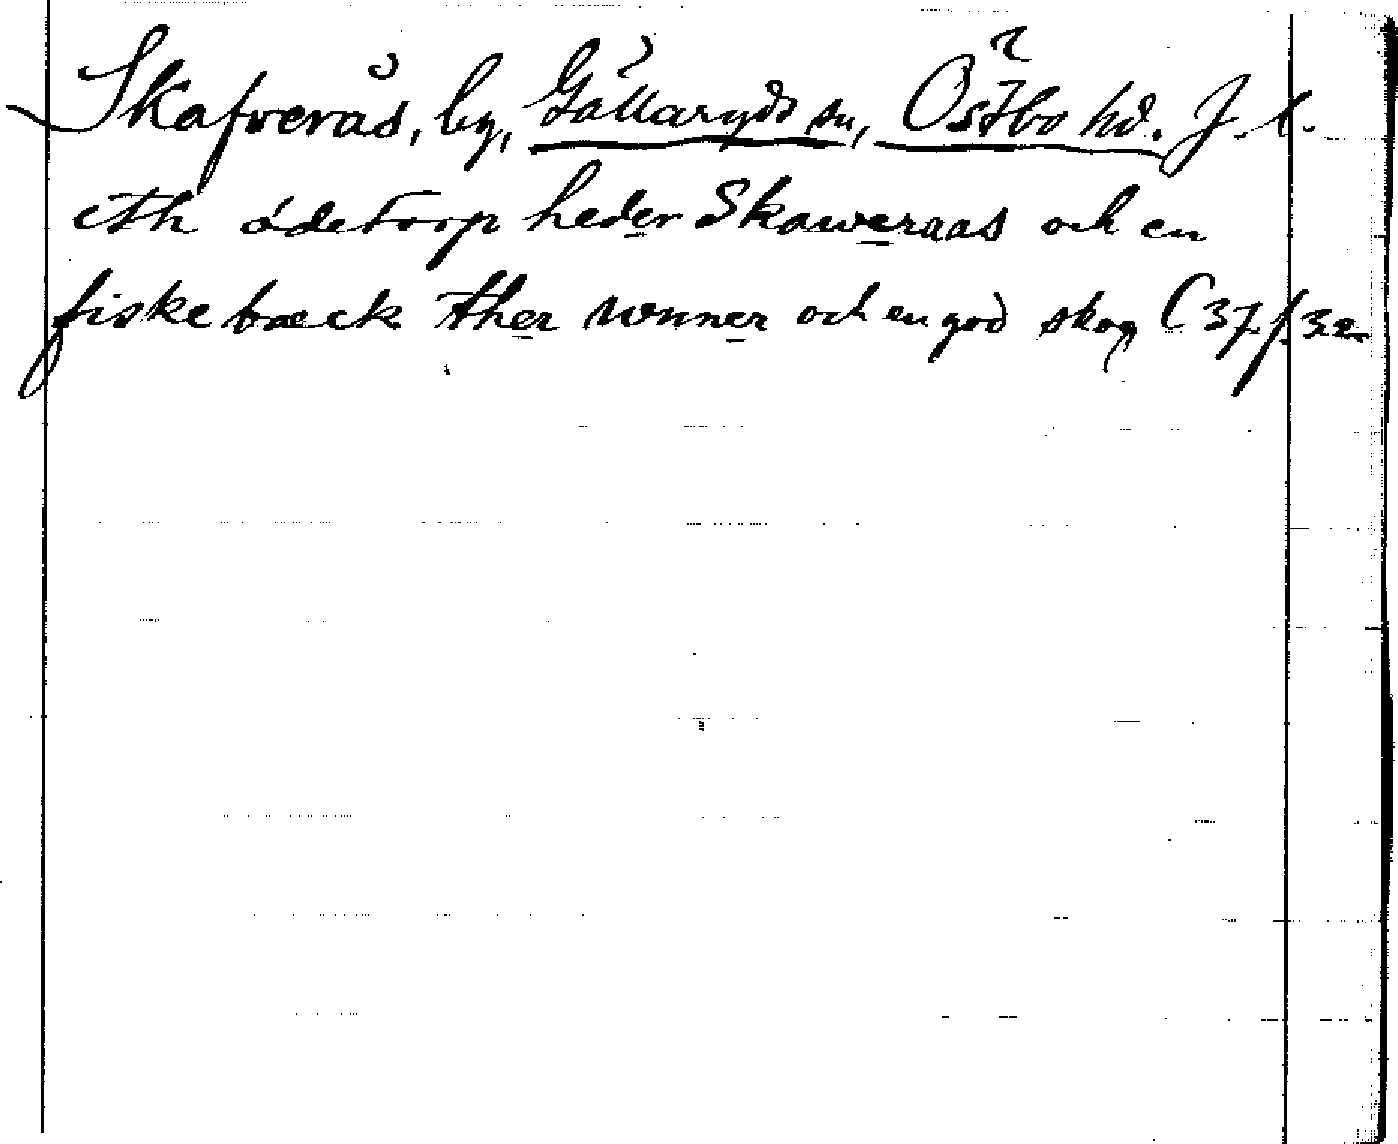 Skafverås, by, Gällaryds sn, Östbo hd. J. l.
eth ödetorp heder Skaweraas och en
fiskebæck ther renner och en god skog C 37 f 32